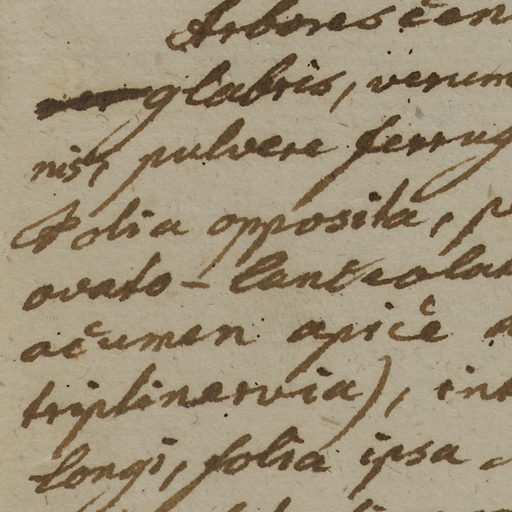 Arbores cen
glabris, verum
nis, pulvere ferrug
Folia opposita, p
ovato-lanceolat
acumen apice
triplinervia), int
longi, folia ipsa